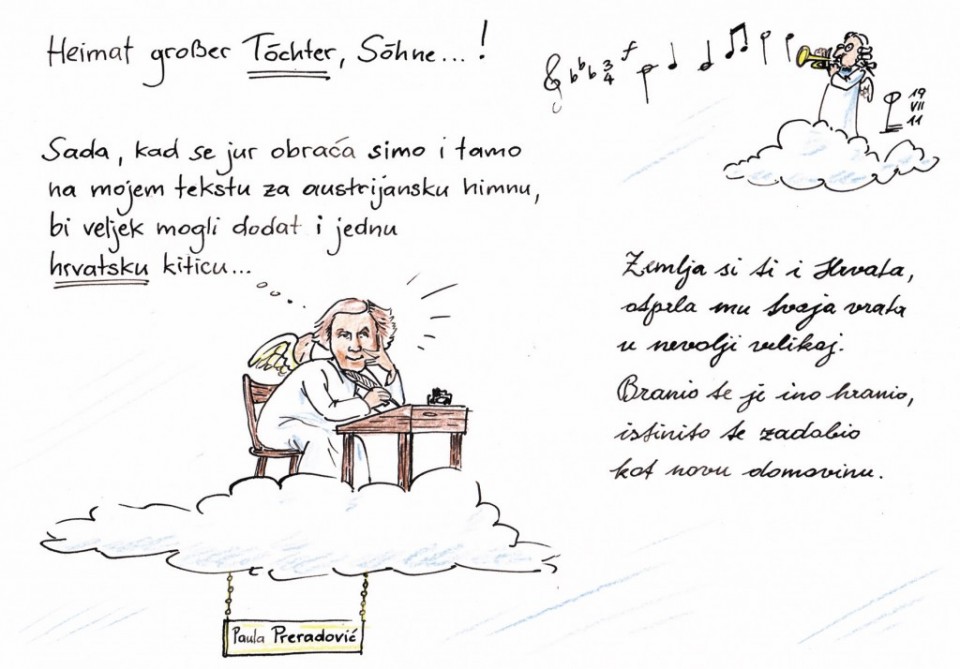 Heimat großer Töchter, Söhne...!
f
3
4
19
VII
11
Sada, kad se jur obraća simo i tamo
na mojem tekstu za austrijansku himnu,
bi veljek mogli dodat i jednu
hrvatsku kiticu...
Zemlja si ti i Hrvata,
otprla mu svoja vrata
u nevolji velikoj.
Branio te je ino hranio,
istinito te zadobio
kot novu domovinu.
Paula Preradović